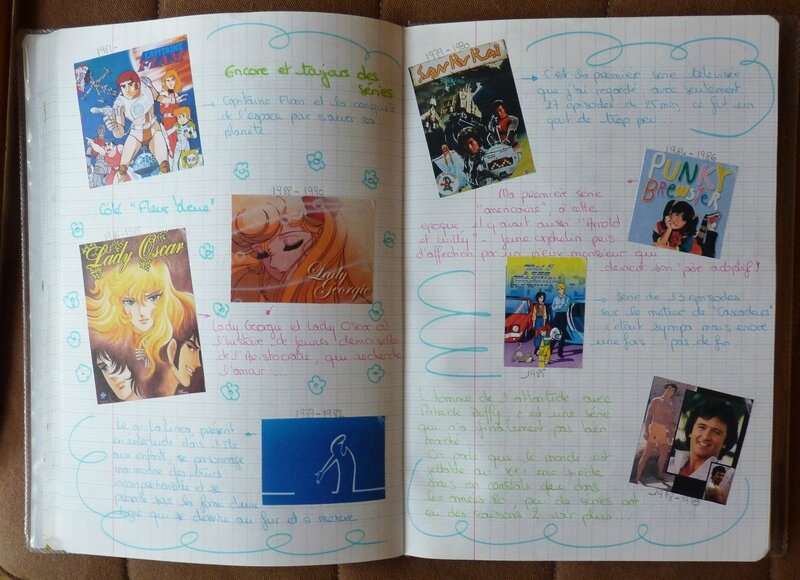 1981-
CAPITAINE
FLAM
Encore et toujours des
séries
Capitaine Flam et la conquête
de l'espace par sauver sa
planète
Côté "Fleur bleue"
1988-1990
Lady Georgie
Lady Oscar
Lady Georgie et Lady Oscar ou
l'histoire de jeunes demoiselles
de l'Aristocratie, qui recherche
l'amour ...
1977-1982
présent
en interlude dans l'île
aux enfants, ce personnage
marmonne des trucs
incompréhensible et se
présente sous la forme d'une
ligne qui se dessine au fur et à mesure
1979-1980
SAN KU KAÏ
C'est la première série télévisée
que j'ai regardé avec seulement
27 épisodes de 25 min, ce fut un
goût de trop peu...
1984-1986
PUNKY
BREWSTER
Ma première série
"américaine" à cette
époque, il y avait aussi "Arnold
et Willy" - Jeune orphelin pris
d'affection par un vieux monsieur qui
devient son "père adoptif"!
1985
série de 13 épisodes
sur le métier de "Cascadeurs"
c'était sympa mais encore
une fois, pas de fin...
L'homme de l'atlantide avec
Patrick Duffy, c'est une série
qui n'a finalement pas bien
marché.
On parle que le monde est
jetable au XXI ème siècle
mais on constate que dans
les années 80 peu de séries ont
eu des saisons 2 voir plus...